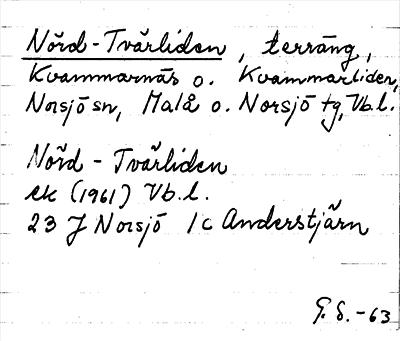 Nörd-Tvärliden, terräng,
Kvammarnäs o. Kvammarliden,
Norsjö sn, Malå o. Norsjö tg, Vb.l.
Nörd - Tvärliden
ek (1961) Vb.l.
23 J Norsjö 1c Anderstjärn
G. S. -63